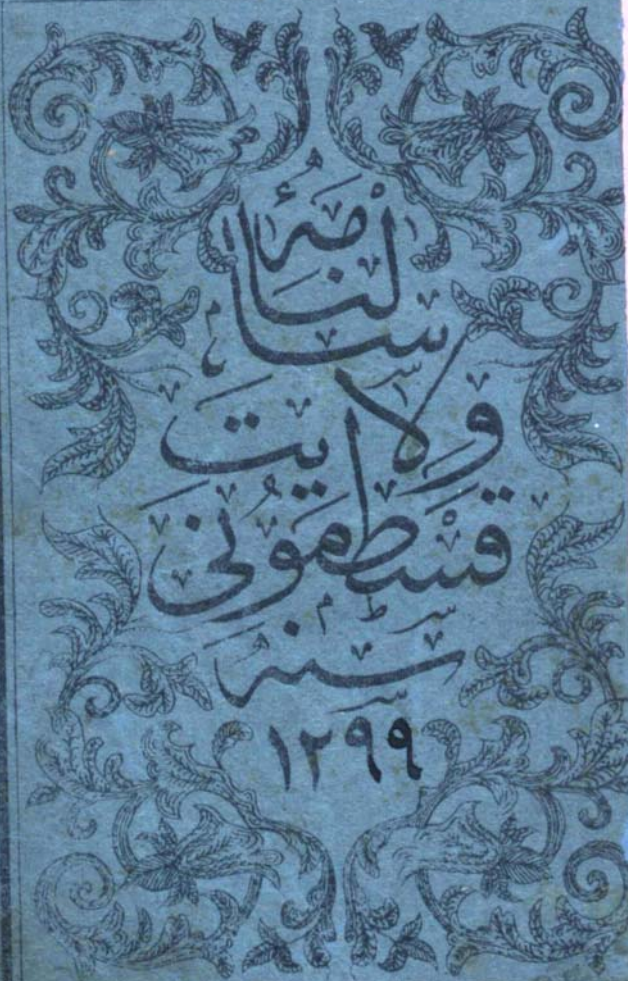 سالنامهٔ
ولايت
قسطمونى
سنه
١٢٩٩